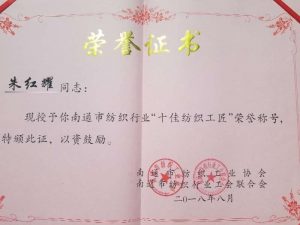 荣誉证书
朱红耀同志：
现授予你南通市纺织行业“十佳纺织工匠”荣誉称号，
特颁此证，以资鼓励。
南通市纺织工业协会
南通市纺织行业工会联合会
二〇一八年八月